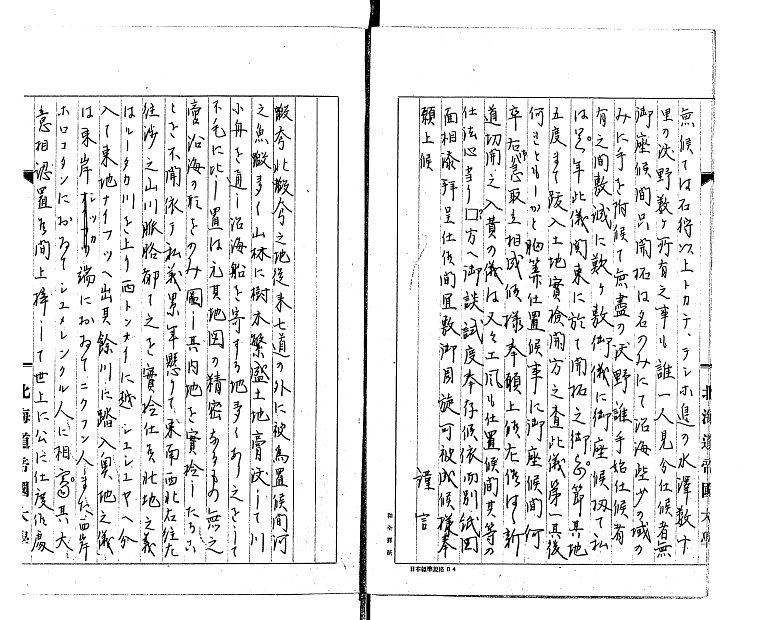 無候ては石狩以上トカチ、テシホ邊の水澤数十
里の沃野数ヶ所有之事も誰一人見分仕候者無
御座候間只開拓は名のみにて沿海些少の域の
みに手を附候て無盡の沃野誰手始仕候者
有之間敷誠に歎ヶ敷御儀に御座候扨て私
は年此儀関東に於て開拓之御節其地
五度まで跋入土地實檢開方之査此儀第其後
何きともしかと胸算仕置候事に御座候間何
卒右急取立相成候様奉願上候左候はゝ新
道切開之入費の儀は又々工風も仕置候間其等の
仕法心当り口方へ御談試度奉存候依而別紙図
面相添拝呈仕候間宜敷御周旋可被成候様奉
願上候
謹言
北海道帝國大學
日本標準規格B4
蝦夷北蝦夷之地從来七道の外に被為置候間河
之魚蝦多く山林に樹木繁盛土地膏沃して川
小舟を通し沿海船を寄する地多くあり之をして
不毛に比し置は元其地図の精密なるもの無之
處沿海の形をのみ圖し其内地を實檢したるこ
とを不聞依て私義累年懸りて東南西北右往左
往渉之山川脈胳都て之を實檢仕候北地之義
はルータカ川を上り西トンナイに越シユシユヤへ分
入て東地ナイフツへ出其餘川に踏入奥地之儀
は東岸シツカ端におゐてニクフン人また西岸
ホロコタンにおゐてシユメレンクル人に相寄其大
意相認置候間上梓して世上に公に仕度候處
北海道帝國大學